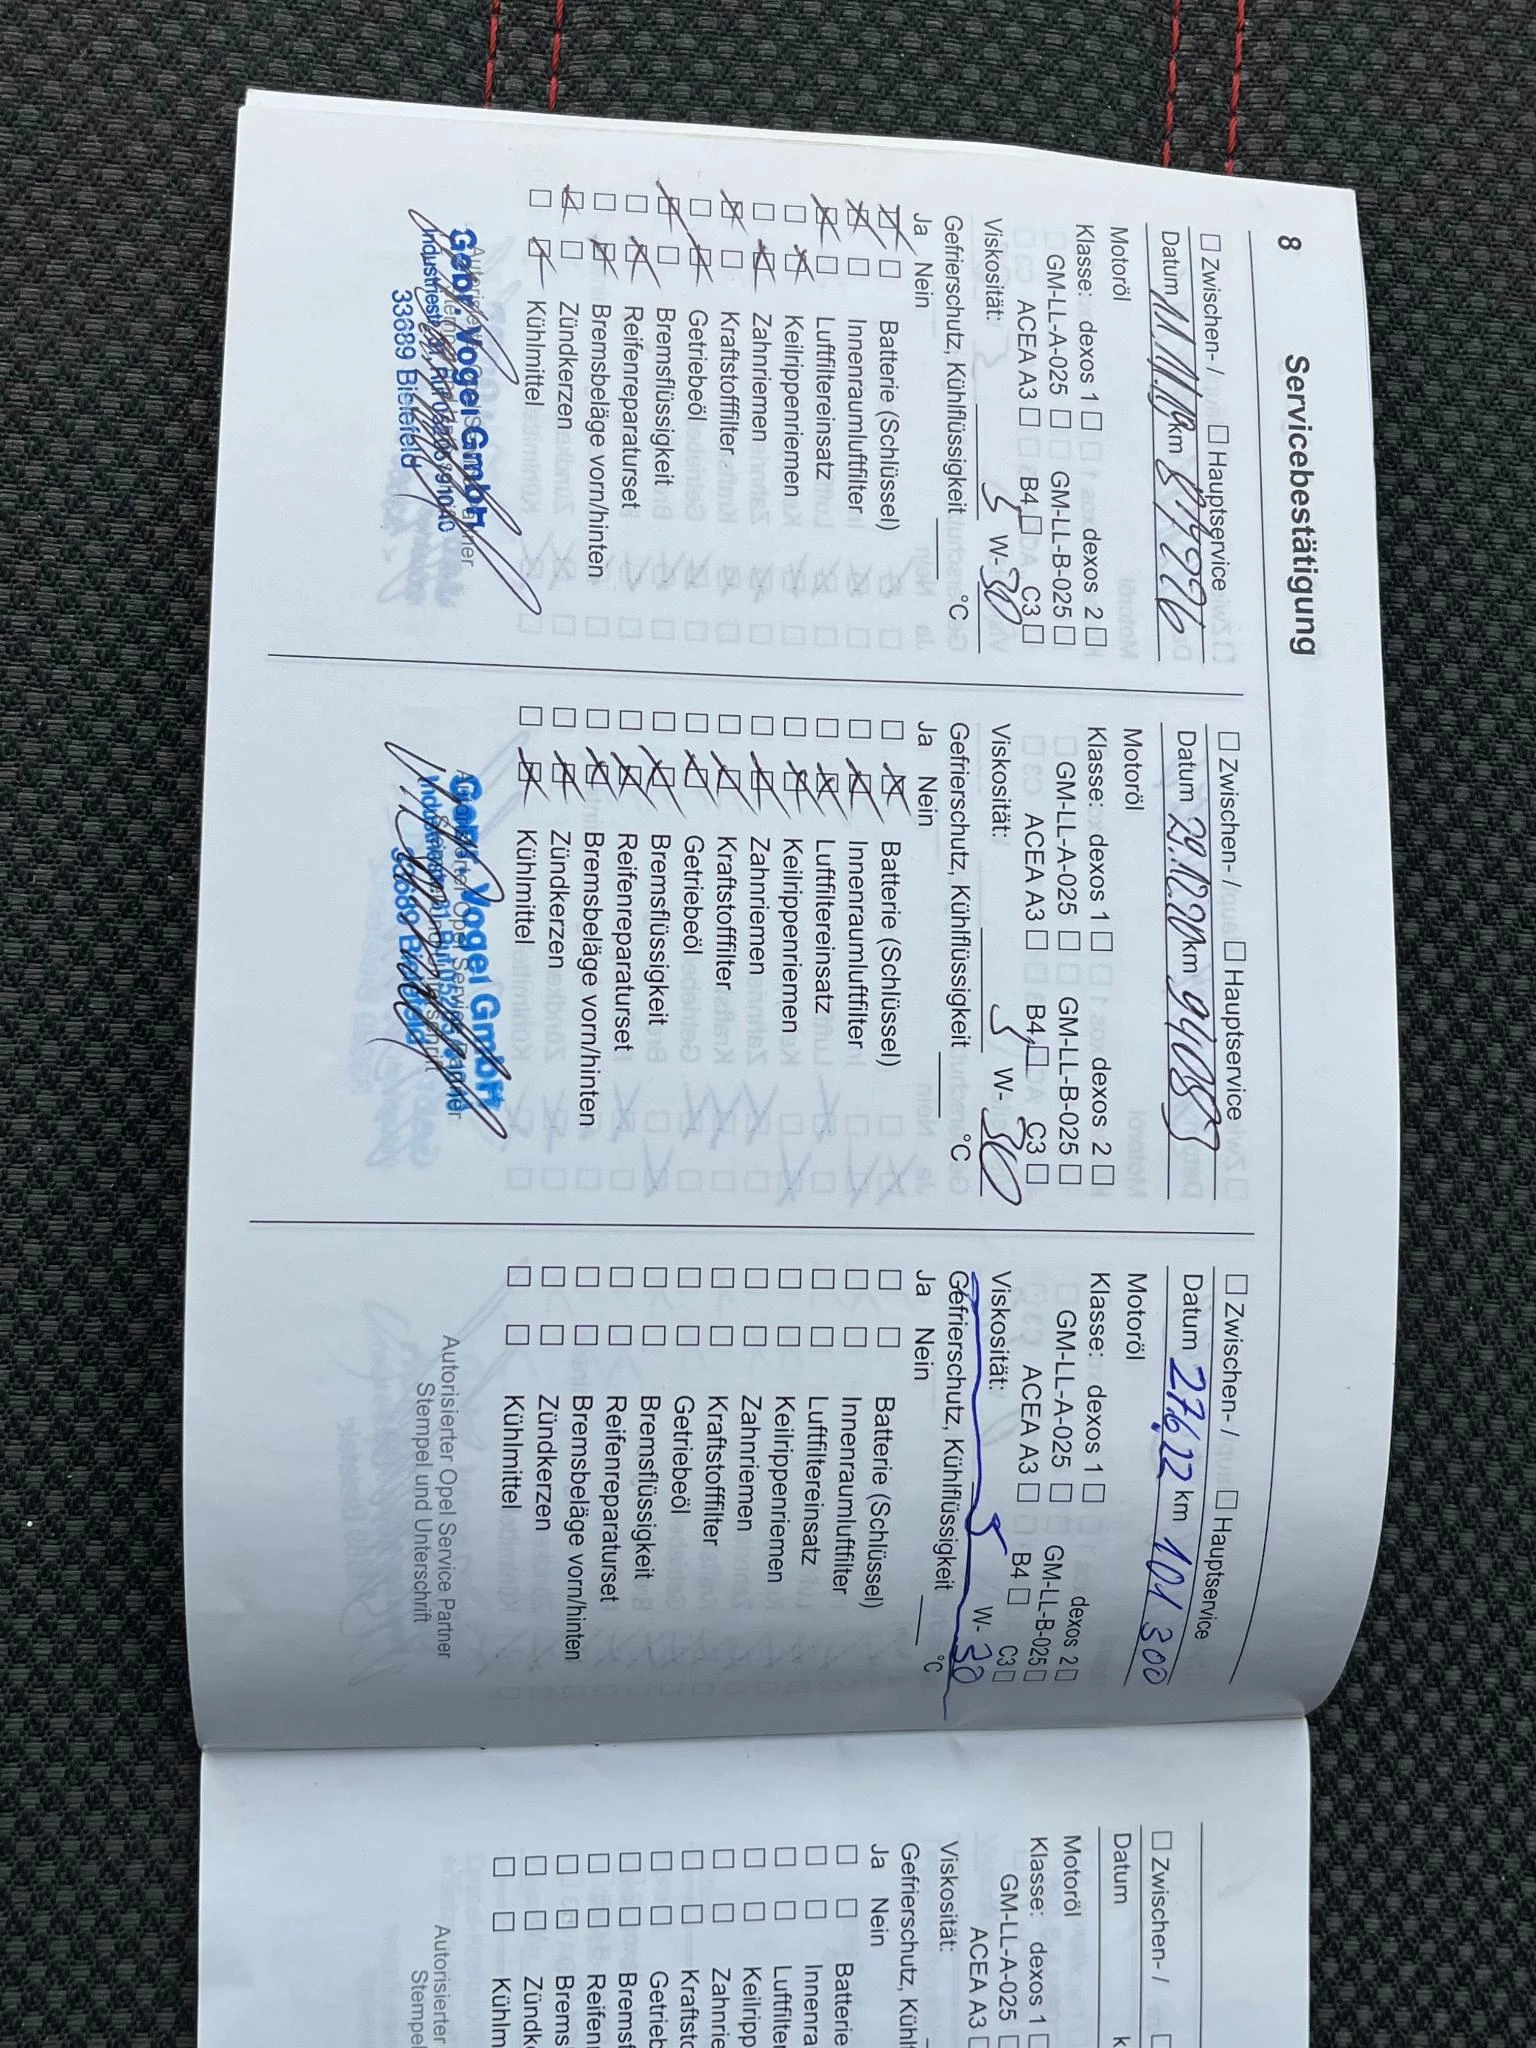 8 Servicebestätigung
Zwischen- / Hauptservice
Datum 11.11.19 km
Motoröl
Klasse: dexos 1 dexos 2
GM-LL-A-025 GM-LL-B-025
ACEA A3 B4 C3
Viskosität: 5 W-30
Gefrierschutz, Kühlflüssigkeit °C
Ja Nein
Batterie (Schlüssel)
Innenraumluftfilter
Luftfiltereinsatz
Keilrippenriemen
Zahnriemen
Kraftstofffilter
Getriebeöl
Bremsflüssigkeit
Reifenreparaturset
Bremsbeläge vorn/hinten
Zündkerzen
Kühlmittel
Gebr. Vogel GmbH
33689 Bielefeld
Zwischen- / Hauptservice
Datum 29.12.20 km
Motoröl
Klasse: dexos 1 dexos 2
GM-LL-A-025 GM-LL-B-025
ACEA A3 B4 C3
Viskosität: 5 W-30
Gefrierschutz, Kühlflüssigkeit °C
Ja Nein
Batterie (Schlüssel)
Innenraumluftfilter
Luftfiltereinsatz
Keilrippenriemen
Zahnriemen
Kraftstofffilter
Getriebeöl
Bremsflüssigkeit
Reifenreparaturset
Bremsbeläge vorn/hinten
Zündkerzen
Kühlmittel
Gebr. Vogel GmbH
33689 Bielefeld
Zwischen- / Hauptservice
Datum 27.6.22 km 101 300
Motoröl
Klasse: dexos 1 dexos 2
GM-LL-A-025 GM-LL-B-025
ACEA A3 B4 C3
Viskosität: 5 W-30
Gefrierschutz, Kühlflüssigkeit °C
Ja Nein
Batterie (Schlüssel)
Innenraumluftfilter
Luftfiltereinsatz
Keilrippenriemen
Zahnriemen
Kraftstofffilter
Getriebeöl
Bremsflüssigkeit
Reifenreparaturset
Bremsbeläge vorn/hinten
Zündkerzen
Kühlmittel
Autorisierter Opel Service Partner
Stempel und Unterschrift
Zwischen- /
Datum k
Motoröl
Klasse: dexos 1
GM-LL-A-025
ACEA A3
Viskosität:
Gefrierschutz, Kühlf
Ja Nein
Batterie
Innenra
Luftfilter
Keilripp
Zahnrie
Kraftsto
Getrieb
Bremsf
Reifen
Brems
Zündk
Kühlm
Autorisierter
Stempel